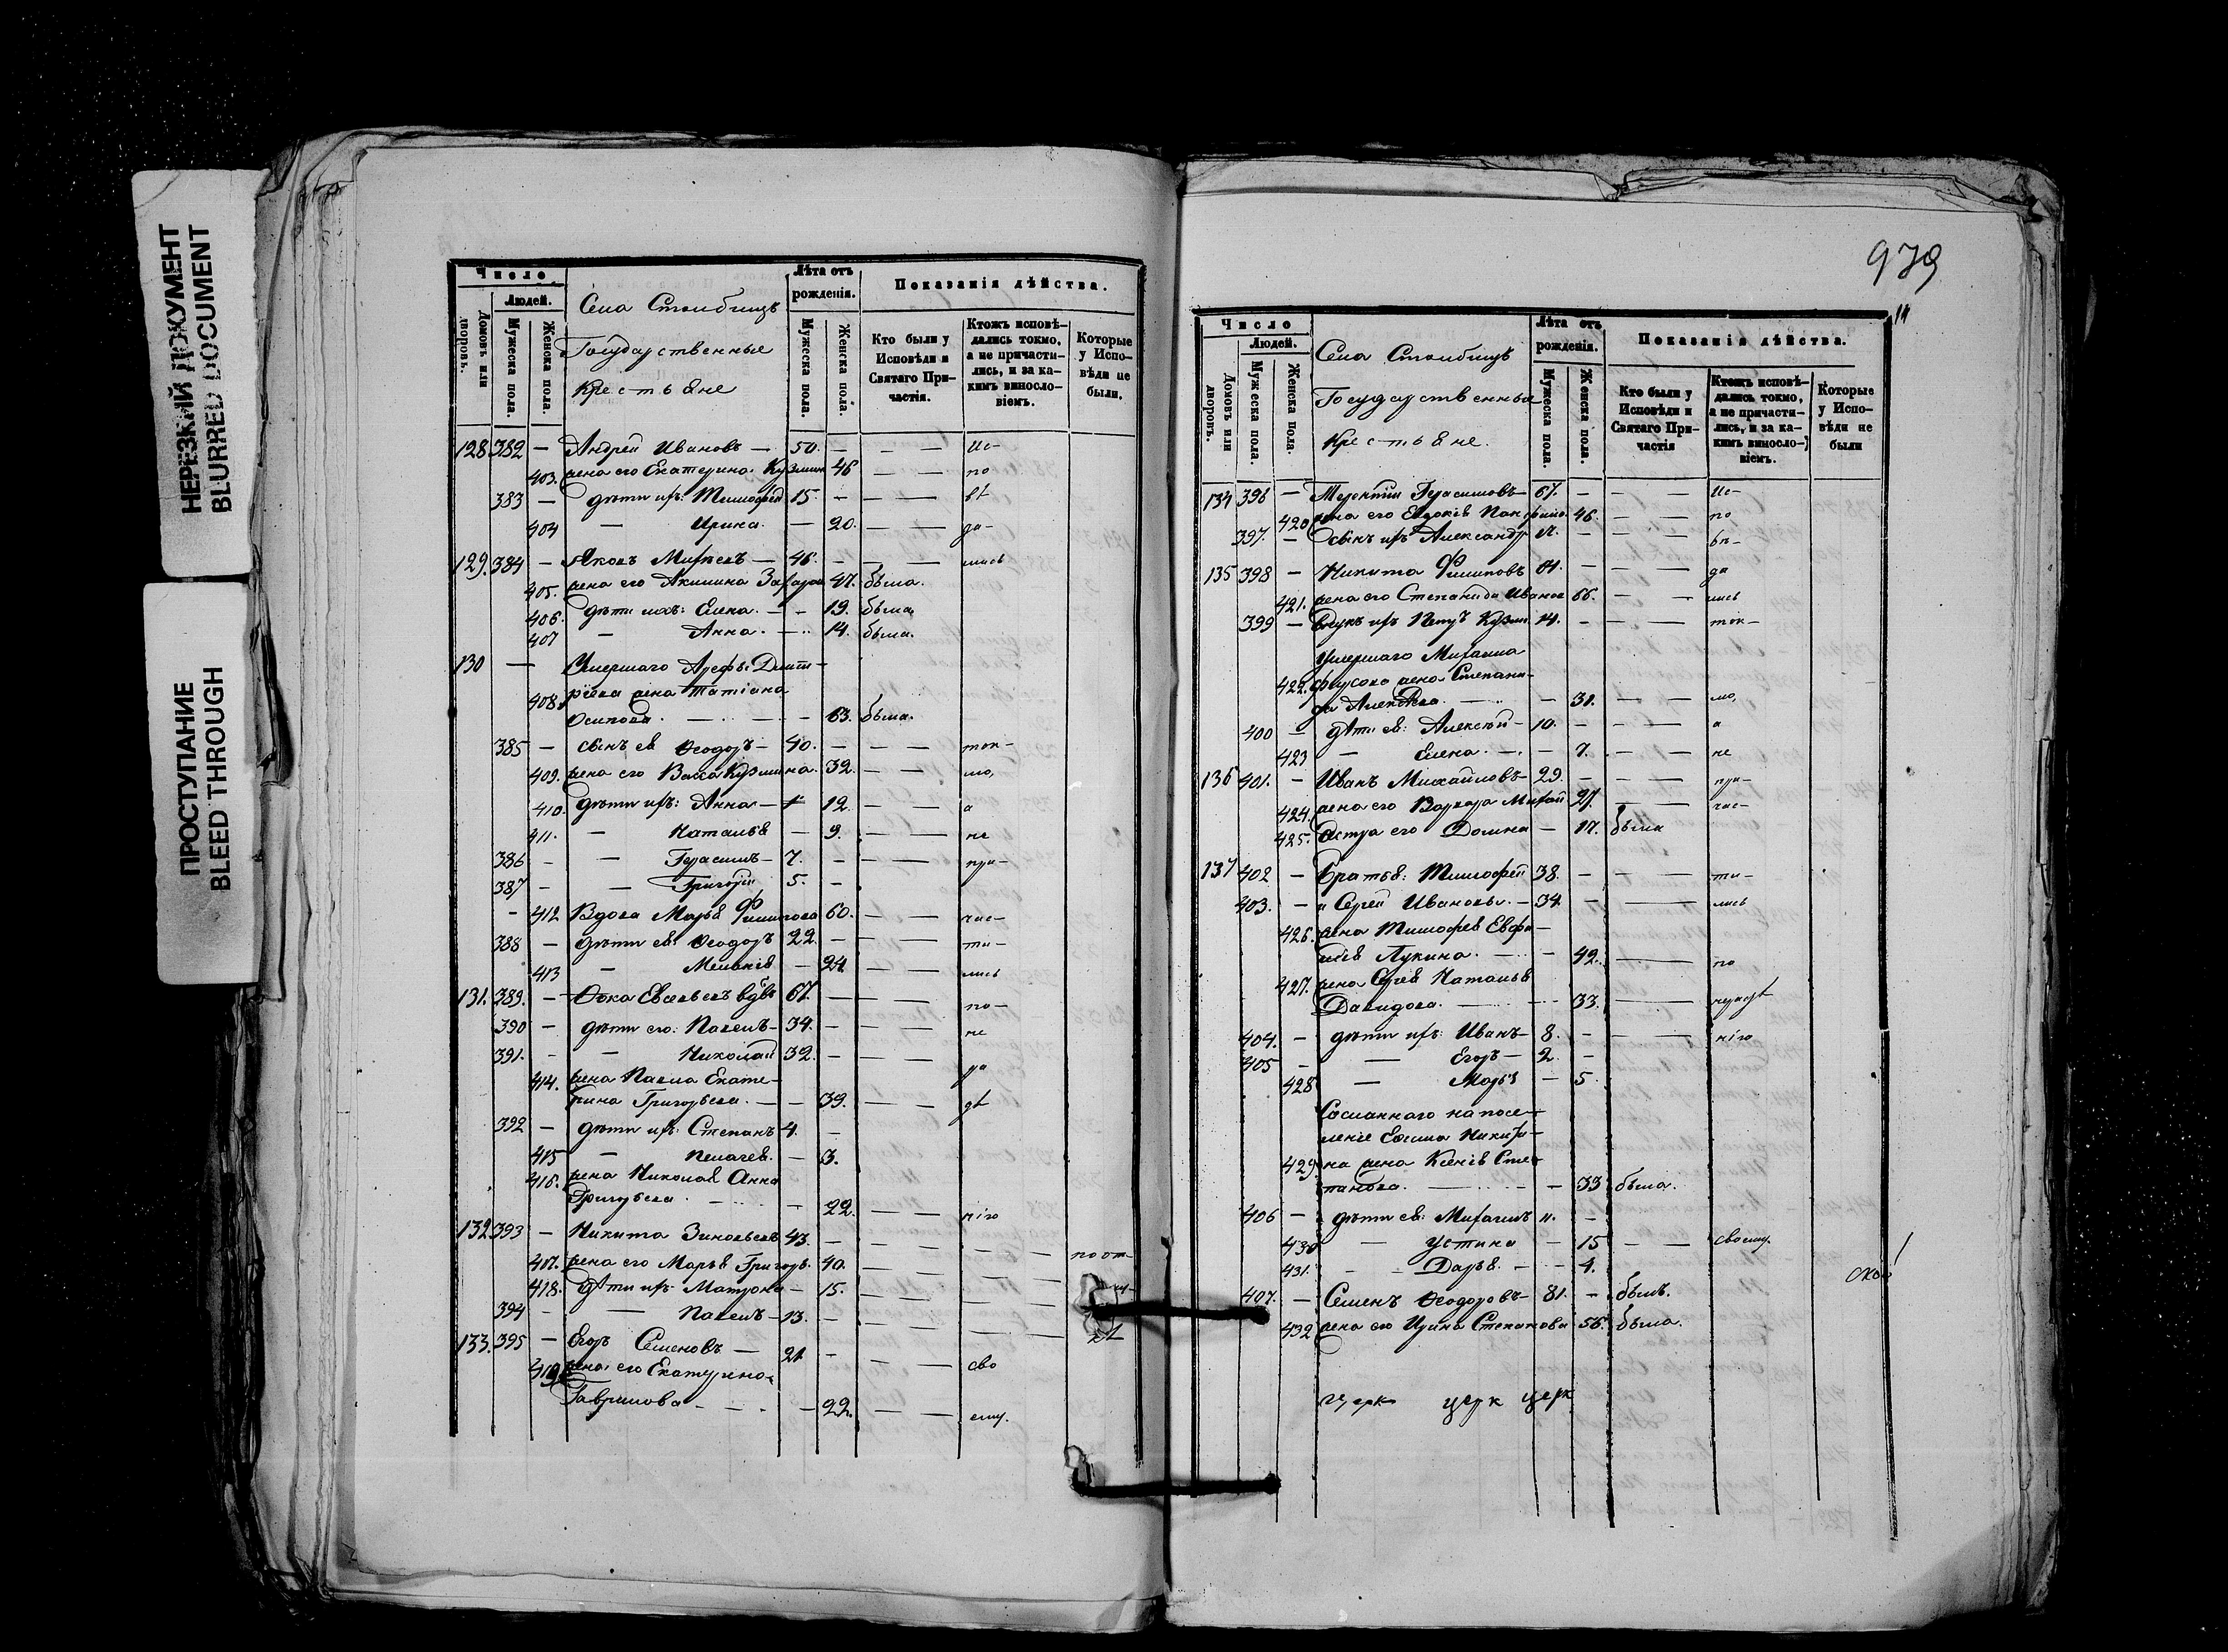 НЕРЕЗКИЙ ДОКУМЕНТ
BLURRED DOCUMENT
ПРОСТУПАНИЕ
BLEED THROUGH
Число
Людей.
Домовъ или дворовъ.
Мужеска пола.
Женска пола.
Села Столбищъ
Государственные
Крестьяне
Лѣта отъ рожденія.
Мужеска пола.
Женска пола.
Показанія дѣйства.
Кто были у Исповѣди и Святаго Причастія.
Ктожъ исповѣдались токмо, а не причастились, и за какимъ винословіемъ.
Которые у Исповѣди не были.
128 382 — Андрей Ивановъ — 50. — — — Ис-
403. жена его Екатерина Кузмин 46 — — по
383 — дѣти ихъ: Тимофей 15. — — — вѣ
404 — Ирина. — 20. — — да-
129. 384 — Яковъ — 46. — — — лись
405. жена его Акилина Захаров 47. была.
406. дѣти ихъ: Елена. — — 19. была.
407 — Анна. — 14. была.
130 — Умершаго Арефы Дмит-
408. ріева жена Татіана
Осипова. — — 63. была.
385 — сынъ ея Ѳеодоръ — 40. — — — ток-
409. жена его Васса Кузмина. 32. — — мо,
410. дѣти ихъ: Анна — 12 — — а
411. — Наталья — 9. — — не
386 — — Герасимъ — 7. — — — при-
387 — — Григорій 5. —
- 412 Вдова Марья Филипова 60. — — час-
388 — дѣти ея Ѳеодоръ 22. — — — ти-
413 — Меланія — 24 — — лись
131. 389. — Ѳока Евсевьевъ вдвъ 67. — — — по-
390 — дѣти его: Павелъ — 34. — — — не
391. — — Николай 32. — — —
414. жена Павла Екате- ра
рина Григорьева. — — 39. — — дѣ
392 — дѣти ихъ: Степанъ 4. —
415 — Пелагея. — 3.
416. жена Николая Анна
Григорьева. — 22. — — нію
132 393 — Никита Зиновьевъ 43. — — — — по от-
417. жена его Марья Григорь. 40. — — — —
418. дѣти ихъ Матрона — 15. — — — —
394 — — Павелъ — 13. — — — —
133. 395 — Егоръ Семеновъ — 21 — — — сво
419. жена его Екатерина
Гаврилова — — 22. — — ему.
979
14
Число
Людей.
Домовъ или дворовъ.
Мужеска пола.
Женска пола.
Села Столбищъ
Государственные
Крестьяне.
Лѣта отъ рожденія.
Мужеска пола.
Женска пола.
Показанія дѣйства.
Кто были у Исповѣди и Святаго Причастія
Ктожъ исповѣдались токмо, а не причастились, и за какимъ винословіемъ.
Которые у Исповѣди не были
134 396 — Терентій Герасимовъ — 67. — — — Ис-
420 жена его Евдокія Панфило. 46. — — по
397. — сынъ ихъ Александр 17. — — — вѣ-
135 398 — Никита Филиповъ 61. — — — да
421. жена его Степанида Иванов 66. — — лись
399 — Внукъ ихъ Петръ Кузм. 14. — — — ток-
Умершаго Михаила
422. жена Степани-
да Алексѣева. — — 31. — — мо,
400 — дѣти ея: Алексѣй — 10. — — — а
423 — Елена. — — 7. — — не
136 401. — Иванъ Михайловъ — 29. — — — при-
424. жена его Варвара Михай 27. — — час-
425. Сестра его Домна — 17. была
137 402 — Братья: Тимофей 38. — — — ти-
403. — и Сергей Ивановы. — 34. — — лись
426. жена Тимофея Евфи-
мія Лукина. — — 42. — по
427. жена Сергѣя Наталья
Давидова. — — 33. — нерадѣ
404. — дѣти ихъ: Иванъ — 8. — — — нію
405 — — Егоръ — 2. —
428 — Марья — 5.
Сосланнаго на посе-
леніе
429 на жена Ксенія Сте-
панова. — — 33 была.
406 — дѣти ея: Михаилъ 11. —
430 — Устина — 15 — — своему.
431. — Дарья. — 4.
ской
407. — Семенъ Ѳеодоровъ — 81. — былъ.
432 жена его Ирина Степанова 56. была.
церк церк церк